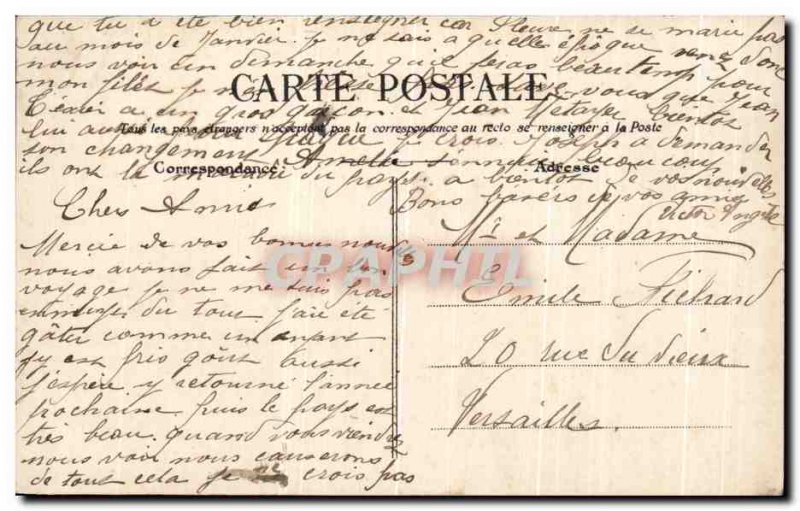 que tu a été bien renseigner car Fleure ne se marie pas
au mois de Janvier. je ne sais a quelles époque venez donc
nous voir un dimanche qu'il feras beau temps pour
mon filés je
CARTE POSTALE
vous que Jean
Texier a un gros garçon et Jean Metayer bientot
Tous les pays étrangers n'acceptent pas la correspondance au recto se renseigner à la Poste
lui aussi je crois. Joseph a demander
son changement beaucoup
Correspondance
Adresse
ils ont la du pays. a bientot de vos nouvelles
Bons baisers de vos amis
Victor Angèle
Chers Amis
Mercie de vos bonnes nouvelles
nous avons fait un bon
voyage je ne me suis pas
ennuyé du tout j'ai été
gâter comme un enfant
j'y est pris goût aussi
j'espère y retourné l'année
prochaine puis le pays est
très beau. quand vous viendrez
nous voir nous causerons
de tout cela je crois pas
Mr et Madame
Emile
20 rue du vieux
Versailles.
CRAPHTL